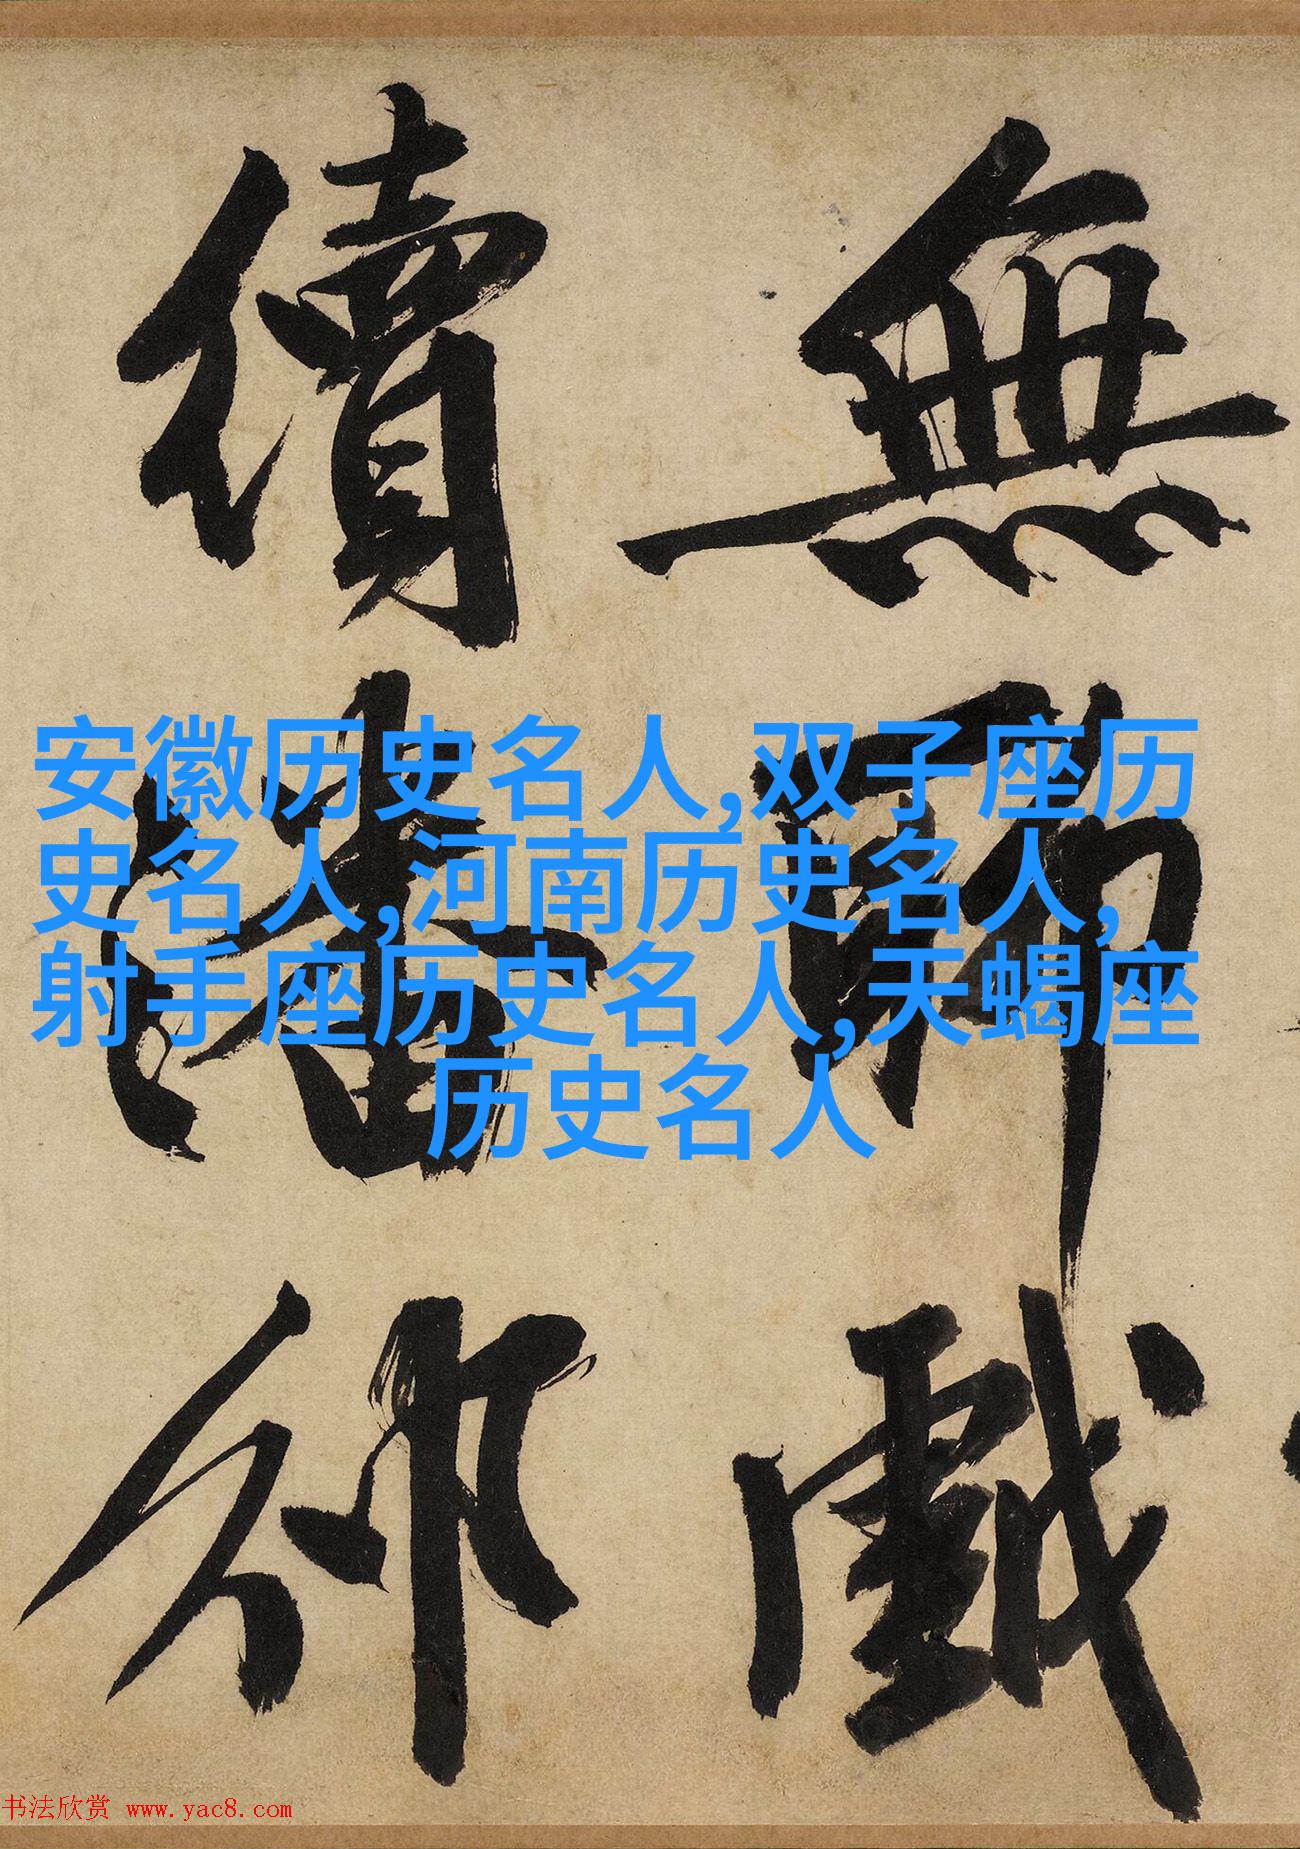 無聊戲
續潘邠
安徽历史名人,双子座历
史名人,河南历史名人,
射手座历史名人,天蝎座
历史名人
书法欣赏 www.yac8.com